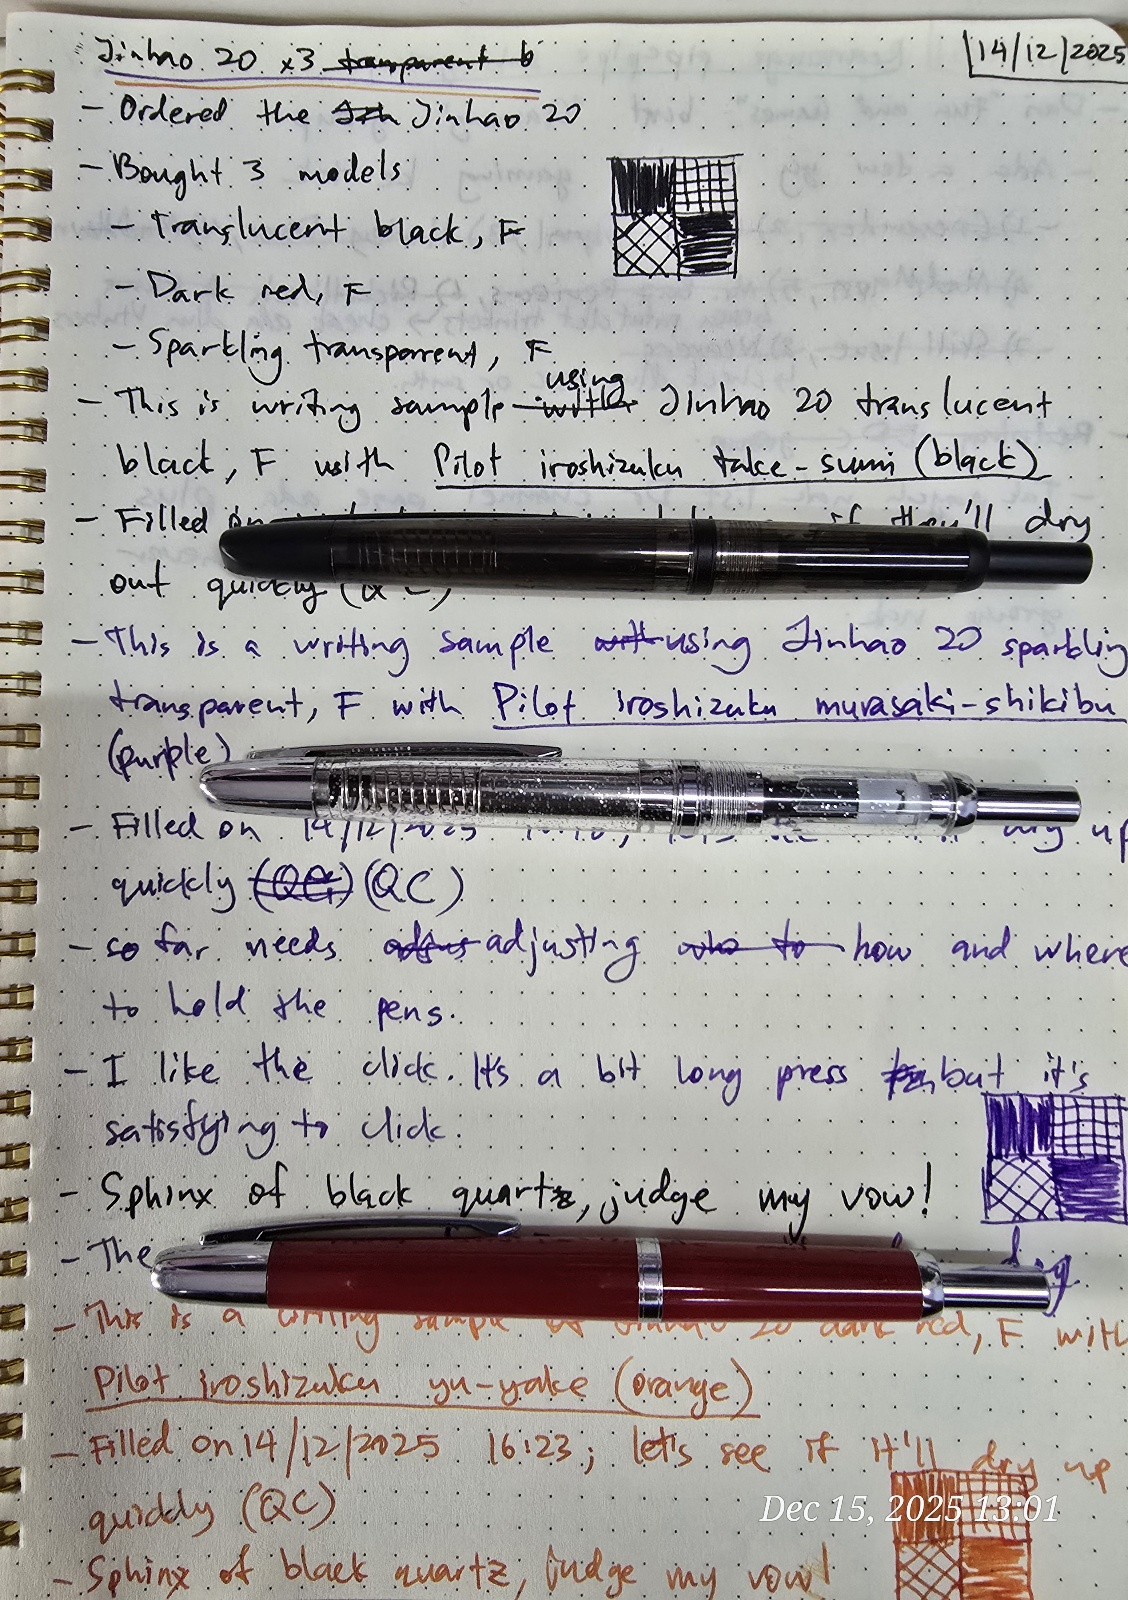 Jinhao 20 x3 transparent b
14/12/2025
- Ordered the Jinhao 20
- Bought 3 models
- Translucent black, F
- Dark red, F
- Sparkling transparent, F
using
- This is writing sample with Jinhao 20 translucent
black, F with Pilot iroshizuku take-sumi (black)
- Filled on if they'll dry
out quickly (QC)
- This is a writing sample with using Jinhao 20 sparkling
transparent, F with Pilot iroshizuku murasaki-shikibu
(purple)
- Filled on 14/12/2025 up
quickly (QC) (QC)
- so far needs adjusting who to how and where
to hold the pens.
- I like the click. It's a bit long press but it's
satisfying to click.
- Sphinx of black quartz, judge my vow!
- The dog
- This is a writing sample of Jinhao 20 dark red, F with
Pilot iroshizuku yu-yake (orange)
- Filled on 14/12/2025 16:23; let's see if it'll dry up
quickly (QC)
- Sphinx of black quartz, judge my vow!
Dec 15, 2025 13:01